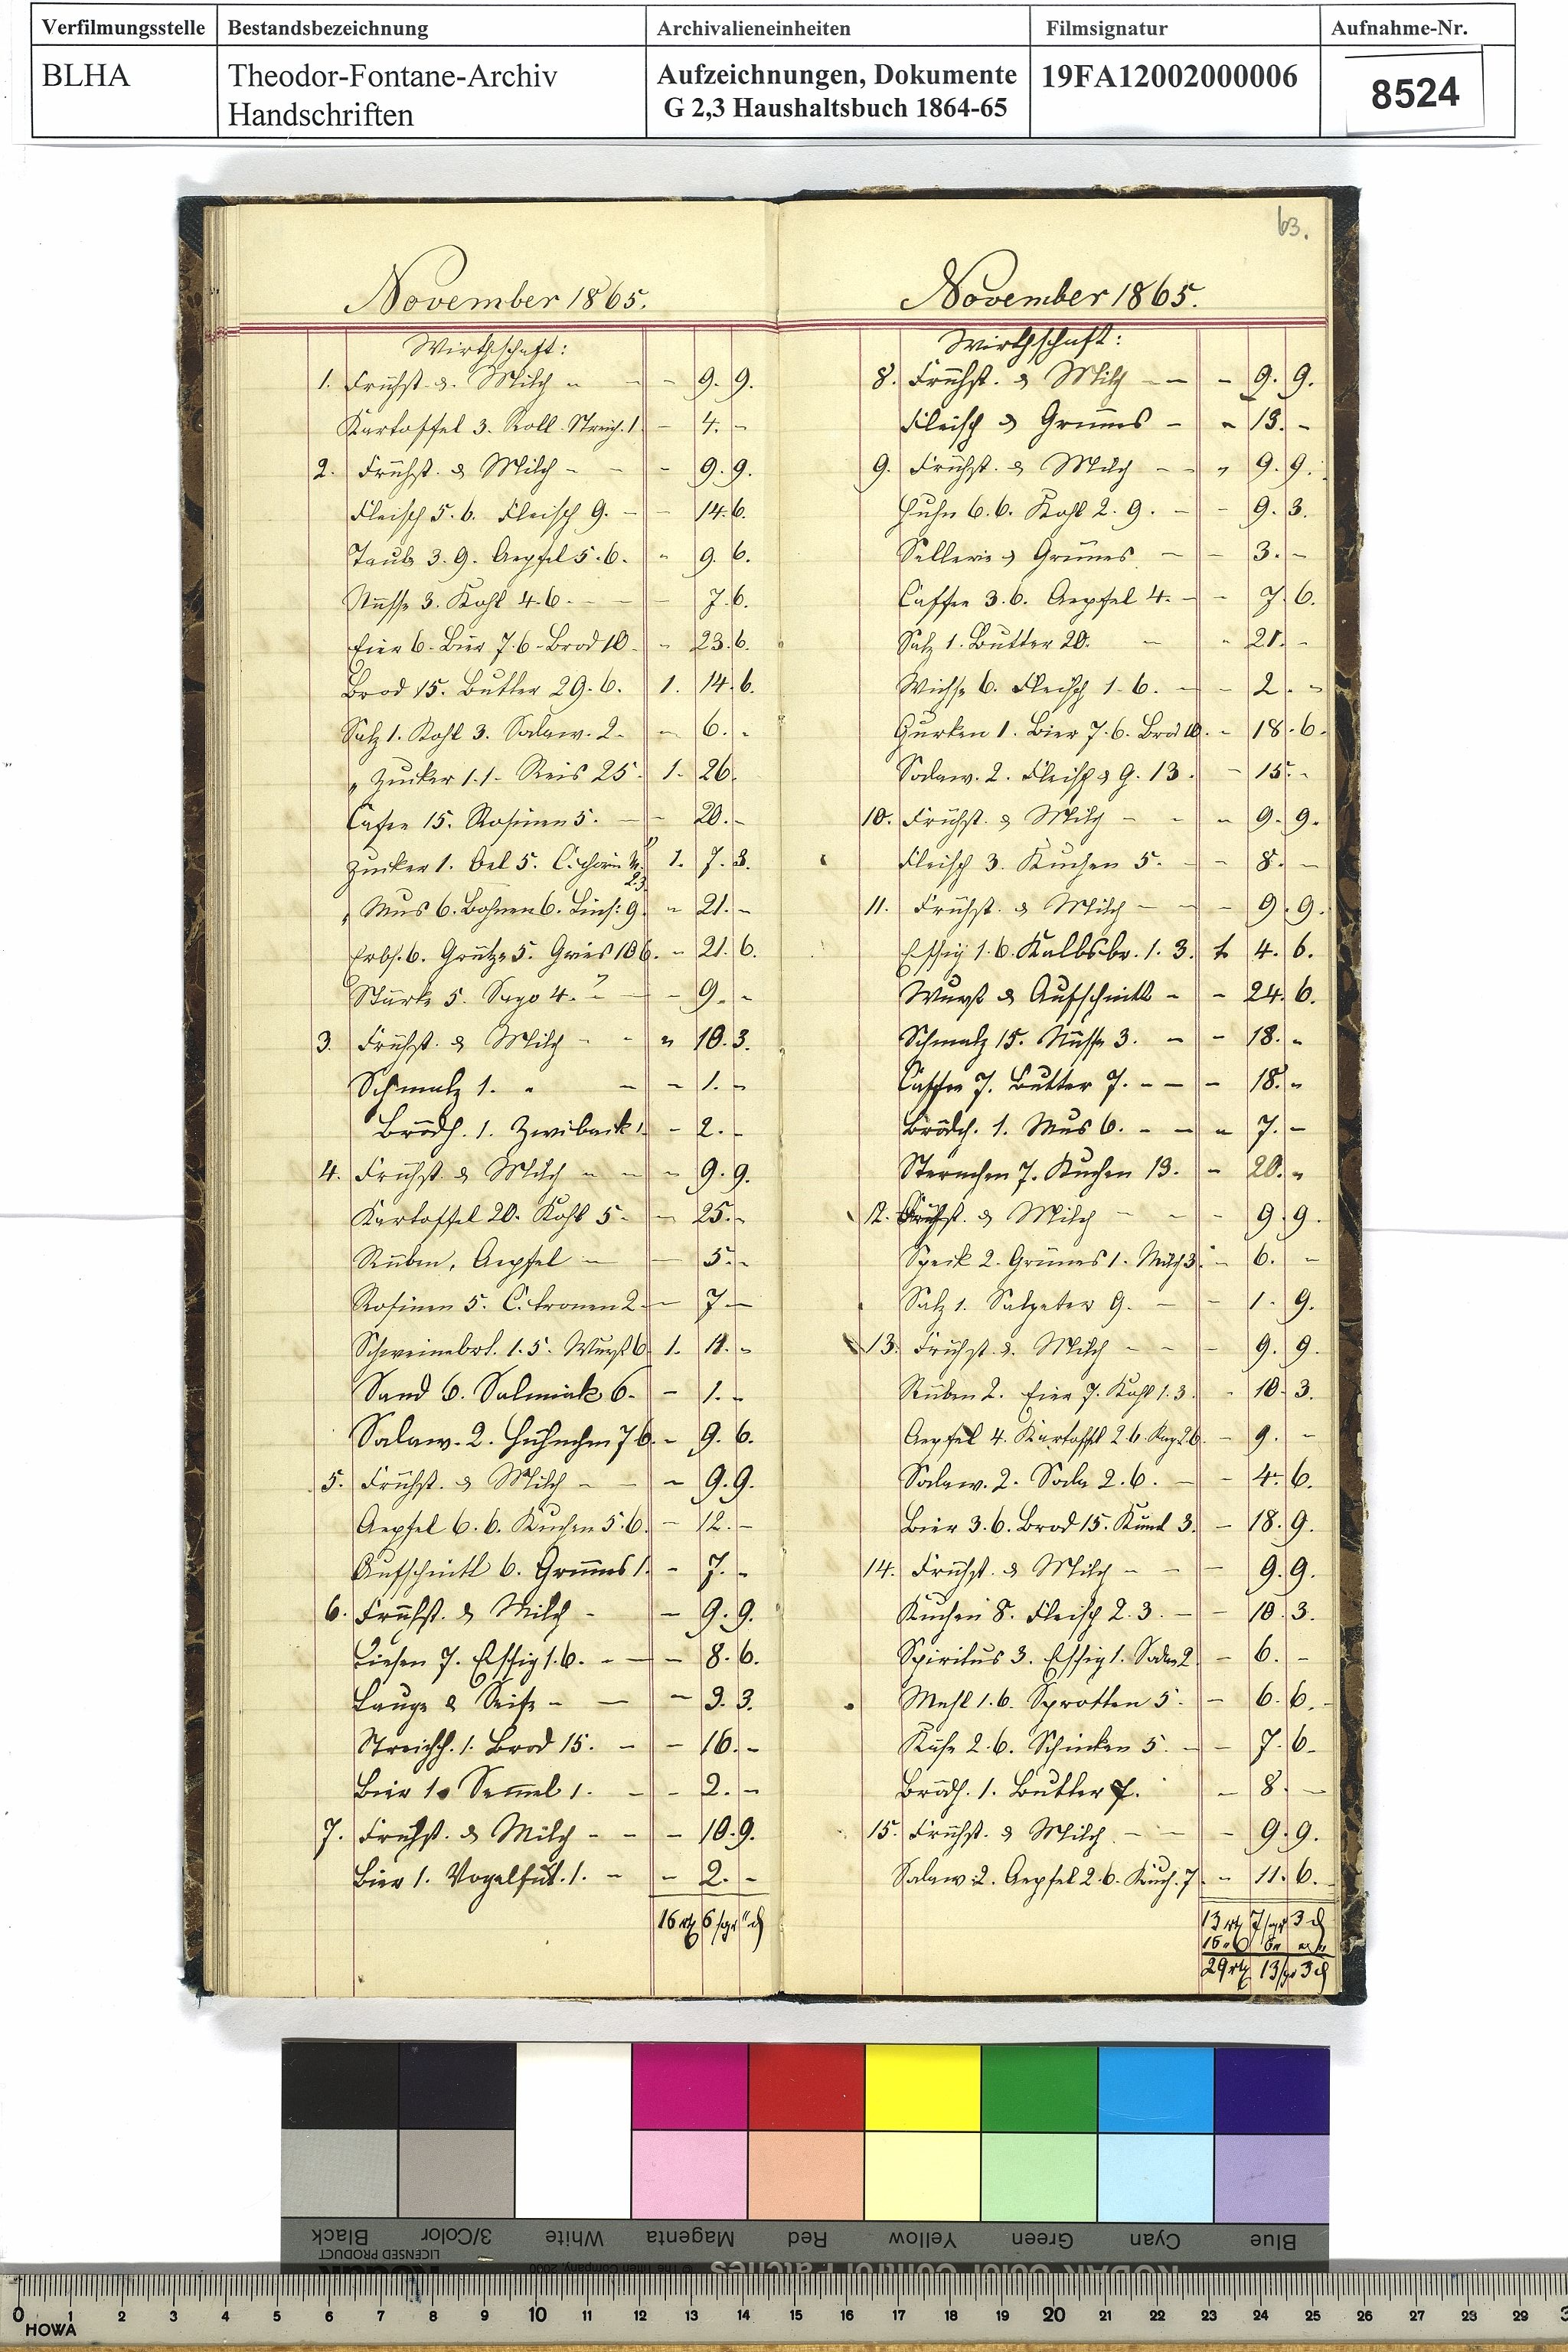 Verfilmungsstelle Bestandsbezeichnung Archivalieneinheiten Filmsignatur Aufnahme-Nr.
BLHA Theodor-Fontane-Archiv Aufzeichnungen, Dokumente 19FA12002000006 8524
Handschriften G 2,3 Haushaltsbuch 1864-65
November 1865.
Wirthschaft:
1. Frühst. & Milch - - - 9. 9.
Kartoffel 3. Roll. Streich. 1 - 4. -
2. Frühst. & Milch - - - 9. 9.
Fleisch 5.6. Fleisch 9. - - 14. 6.
Taube 3.9. Aepfel 5.6. - 9. 6.
Nüsse 3. Kohl 4.6. - - 7. 6.
Eier 6. Bier 7.6 - Brod 10. - 23. 6.
Brod 15. Butter 29.6. 1. 14. 6.
Salz 1. Kohl 3. Sodaw. 2. - 6. -
" Zucker 1.1. Reis 25. 1. 26.
Cafee 15. Rosinen 5. - - 20. -
Zucker 1. Oel 5. 1. 7. 3.
" Mus 6. Bohnen 6. Lins: 9. - 21. -
Erbs. 6. Grütze 5. Gries 10 6. - 21. 6.
Stärke 5. Sago 4. - - 9. -
3. Frühst. & Milch - - " 10. 3.
Schmalz 1. - - - 1. -
Brödch. 1. Zwiback 1. - 2. -
4. Frühst. & Milch - - - 9. 9.
Kartoffel 20. Kohl 5. - 25. -
Rüben, Aepfel - - 5. -
Rosinen 5. Citronen 2. - 7 -
Schweinebrt. 1.5. Wurst 6 1. 11. -
Sand 6. Salmiak 6. - 1. -
Sodaw. 2. Hühnchen 7 6. - 9. 6.
5. Frühst. & Milch - - - 9. 9.
Aepfel 6.6. Kuchen 5.6. - 12. -
Aufschnitt 6. Grünes 1. - 7. -
6. Frühst. & Milch - - 9. 9.
7. Essig 1.6. - - - 8. 6.
Lauge & Seife - - - 3. 3.
Streichh. 1. Brod 15. - - 16. -
Bier 1. Semmel 1. - - 2. -
7. Frühst. & Milch - - - 10. 9.
Bier 1. Vogelfut. 1. - - 2. -
16 rt 6 sgr " d
63.
November 1865.
Wirthschaft:
8. Frühst. & Milch - - - 9. 9.
Fleisch & Grünes - - 13. -
9. Frühst. & Milch - - " 9. 9.
Huhn 6.6. Kohl 2.9. - - 9. 3.
Sellerie & Grünes. - - 3. -
Caffee 3.6. Aepfel 4. - - 7. 6.
Salz 1. Butter 20. - - 21. -
Wichse 6. Fleisch 1.6. - - 2. -
Gurken 1. Bier 7.6. Brod 10. - 18. 6.
Sodaw. 2. Fleisch & G. 13. - 15. -
10. Frühst. & Milch - - - 9. 9.
Fleisch 3. Kuchen 5. - - 8. -
11. Frühst. & Milch - - - 9. 9.
Essig 1.6. Kalbsbr. 1.3. 1. 4. 6.
Wurst & Aufschnitt - - 24. 6.
Schmalz 15. Nüsse 3. - - 18. -
Caffee 7. Butter 7. - - - 18. -
Brödch. 1. Mus 6. - - - 7. -
Sternchen 7. Kuchen 13. - 20. -
12. Frühst. & Milch - - - 9. 9.
Speck 2. Grünes 1. Milch 3. - 6. -
Salz 1. Salpeter 9. - - 1. 9.
13. Frühst. & Milch - - - 9. 9.
Rüben 2. Eier 7. Kohl 1.3. - 10. 3.
Aepfel 4. Kartoffel 2.6. 2.6. - 9. -
Sodaw. 2. Soda 2.6. - - 4. 6.
Bier 3.6. Brod 15. 3. - 18. 9.
14. Frühst. & Milch - - - 9. 9.
Kuchen 8. Fleisch 2.3. - - 10. 3.
Spiritus 3. Essig 1. Sodaw 2 - 6. -
Mehl 1.6. Sprotten 5. - 6. 6. -
Käse 2.6. Schinken 5. - - 7. 6 -
Brödch. 1. Butter 7. - 8. -
15. Frühst. & Milch. - - - 9. 9.
Sodaw. 2. Aepfel 2.6. Kuch. 7. - 11. 6.
13 rt 7 sgr 3 d
16 " 6 " " "
29 rt 13 sgr 3 d
Black 3/Color White Magenta Red Yellow Green Cyan Blue
LICENSED PRODUCT
Kodak © The Tiffen Company, 2000 KODAK Color Control Patches
0 1 2 3 4 5 6 7 8 9 10 11 12 13 14 15 16 17 18 19 20 21 22 23 24 25 26 27 28 29 3
HOWA